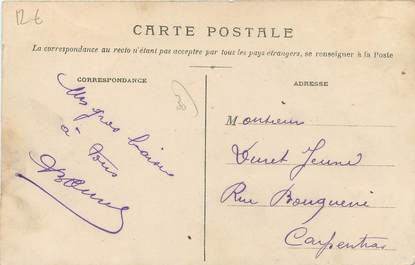 12 €
CARTE POSTALE
La correspondance au recto n'étant pas acceptée par tous les pays étrangers, se renseigner à la Poste
CORRESPONDANCE
ADRESSE
Mes gros baisers
à tous
Monsieur
Duret Jeune
Rue
Carpentras